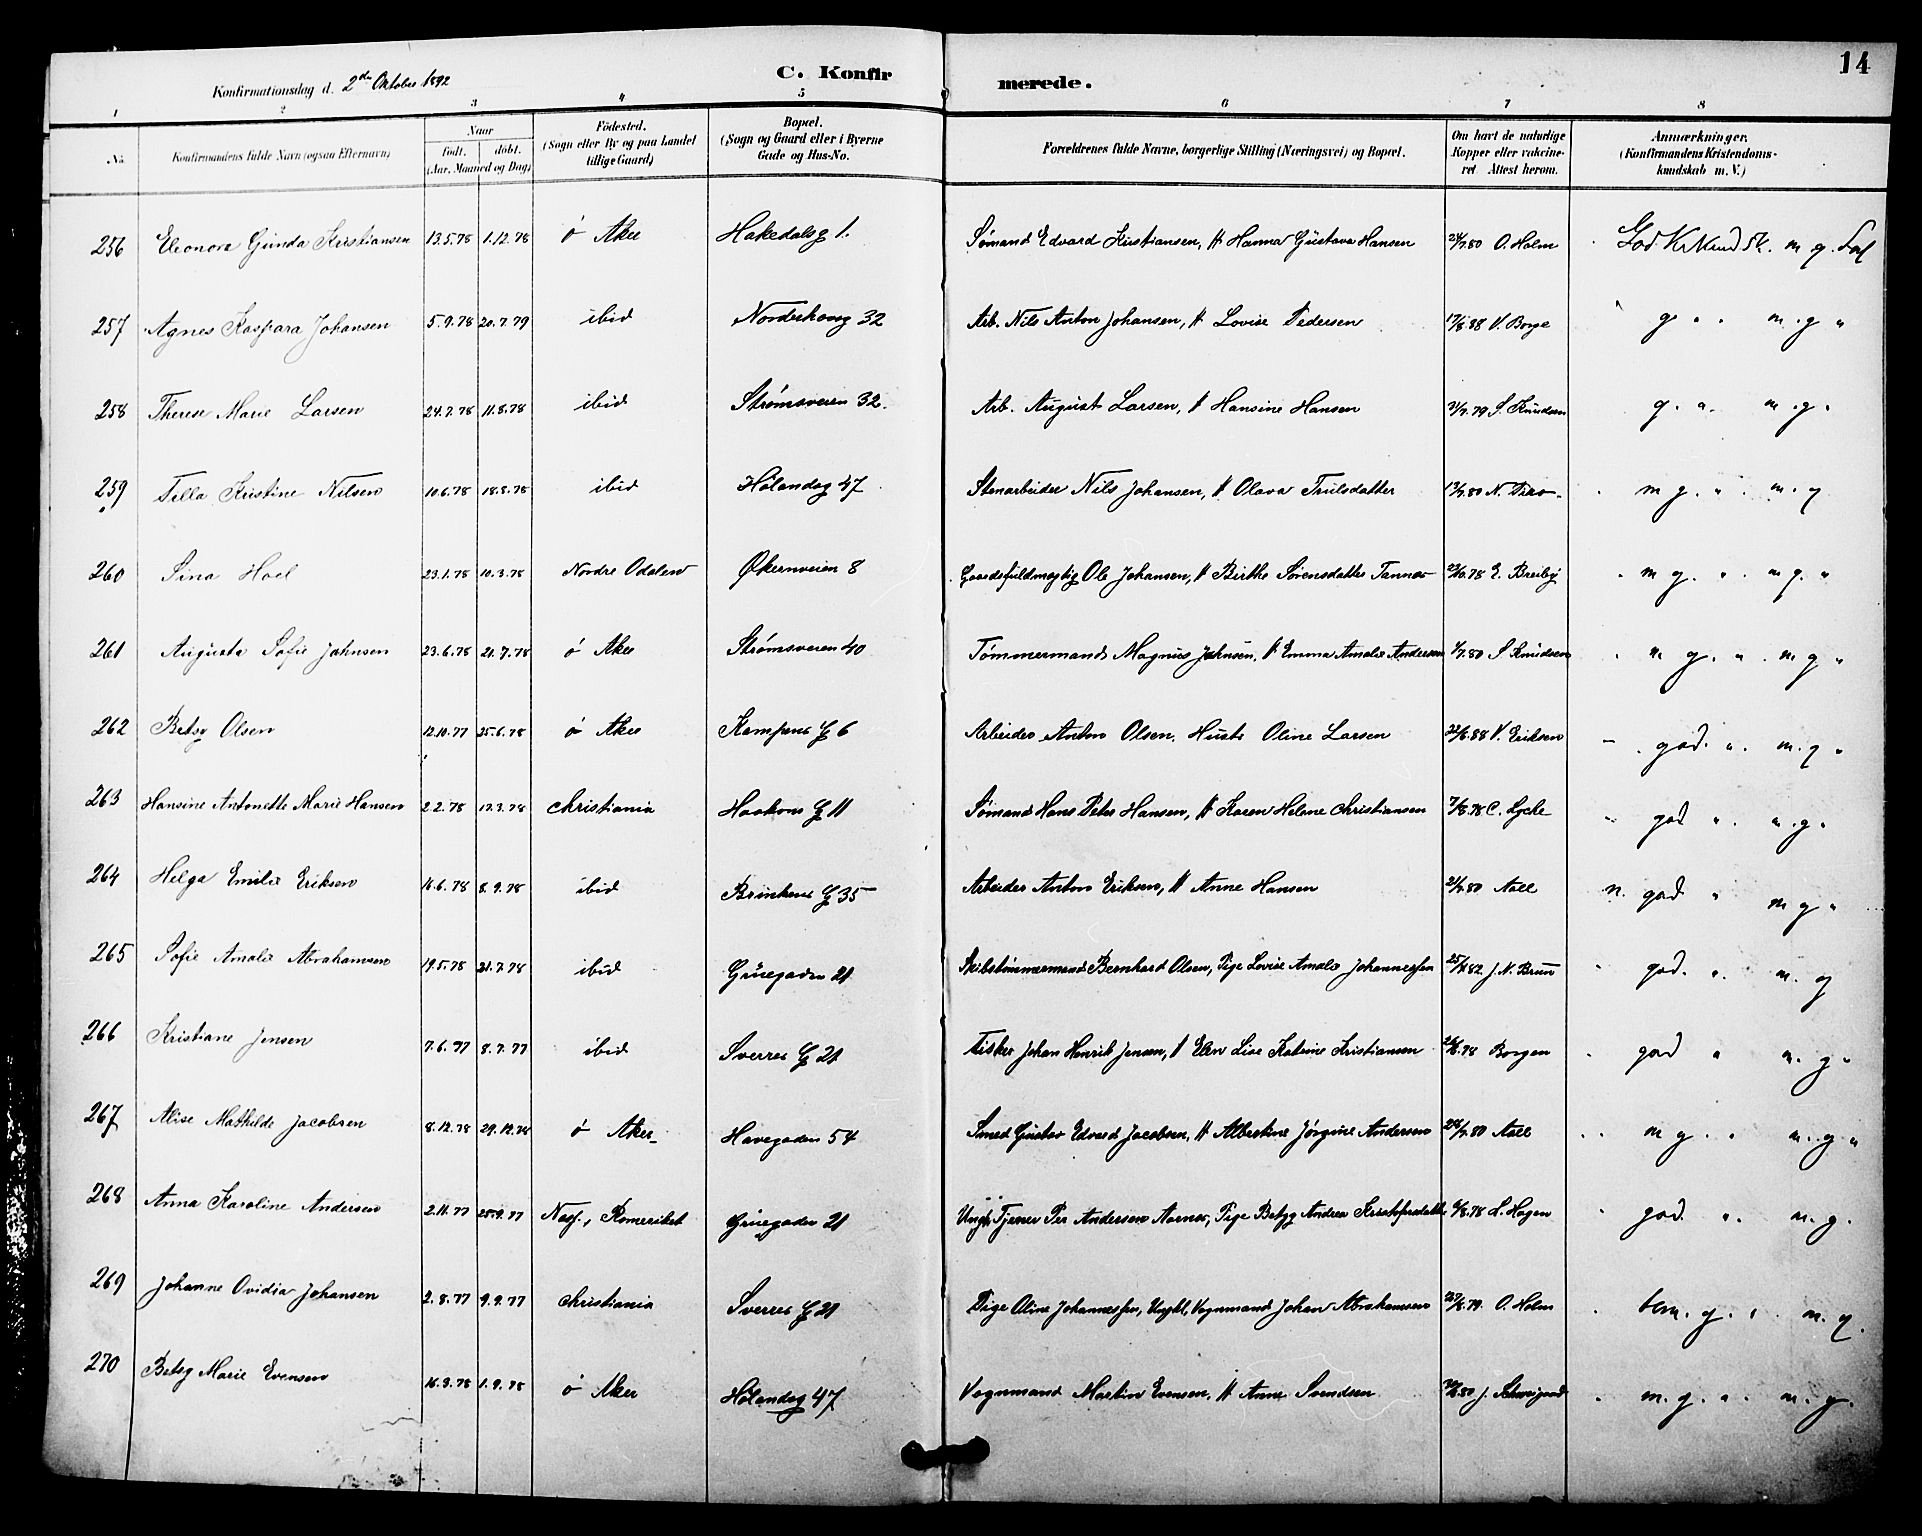 14
C. Konfirmerede.
Konfirmationsdag d. 2den Oktober 1892
1 2 3 4 5 6 7 8
No. Konfirmandens fulde Navn (ogsaa Efternavn) Naar født. døbt. (Aar, Maaned og Dag) Fødested. (Sogn eller By og paa Landet tillige Gaard) Bopæl. (Sogn og Gaard eller i Byerne Gade og Hus-No. Forældrenes fulde Navne, borgerlige Stilling (Næringsvei) og Bopæl. Om havt de naturlige Kopper eller vakcineret Attest herom. Anmærkninger. (Konfirmandens Kristendomskundskab m. V.)
256 Eleonora Gunda Kristiansen 13.5.78 1.12.78 ø Aker Hakedalsg 1. Sømand Edvard Kristiansen, H Hanna Gustava Hansen 24/7.80 O. Holm God Kr Kundsk. m g.
257 Agnes Kaspara Johansen 5.9.78 20.7.79 ibid Norderhovg 32 Arb. Nils Anton Johansen, H Lovise Pedersen 17/8.88 V. Borge g " . m.g "
258 Therese Marie Larsen 24.7.78 11.8.78 ibid Strømsveien 32. Arb. August Larsen, H Hansine Hansen 79 S. Knudsen g. ". m.g.
259 Tilla Kristine Nilsen 10.6.78 18.8.78 ibid Hølandsg 47 Stenarbeider Nils Johansen, H Olava Trulsdatter 80 m g. " . m. g
260 Sina Hoel 23.1.78 10.3.78 Nordre Odalen Økernveien 8 Gaardsfuldmægtig Ole Johansen, H Birthe Sørensdatter 78 E. Breiby m g. " . m g. "
261 Augusta Sofie Johnsen 23.6.78 21.7.78 ø Aker Strømsveien 40 Tømmermand Magnus Johnsen, H Emma Amalie Andersen 80 S Knudsen m g. " . m. g "
262 Betsy Olsen 12.10.77 25.6.78 ø Aker Kampens G 6 Arbeider Anton Olsen, Hustr Oline Larsen 22/8.88 V. Eriksen god. " . m. g "
263 Hansine Antonette Marie Hansen 2.2.78 17.3.78 Christiania Haakons G 11 Sømand Hans Peter Hansen, H Karen Helene Christiansen 7/8.78 C. Lyche god " . m.g.
264 Helga Emilie Eriksen 16.6.78 8.9.78 ibid Brinkens G 35 Arbeider Anton Eriksen, H Anne Hansen 21/7.80 Aall n. god " m g "
265 Sofie Amalie Abrahamsen 19.5.78 21.7.78 ibid Grüegaden 21 Skibstømmermand Bernhard Olsen, Pige Lovise Amalie Johannessen 82 J. N. Bruun god. " . m. g
266 Kristiane Jensen 7.6.77 8.7.77 ibid Sverres G 21 Fisker Johan Henrik Jensen, H Elen Lise Katrine Kristiansen 78 Borgen god " m. g "
267 Alise Mathilde Jacobsen 8.12.78 29.12.78 ø Aker Havegaden 54 Smed Gustav Edvard Jacobsen, H Albertine Jørgine Andersen 28/7.80 Aall m g. " m. g "
268 Anna Karoline Andersen 2.11.77 25.9.77 Næs, Romeriket Grüegaden 21 Ungk. Tjener Per Andersen Aarnes, Pige Betzy Andrea Kristofersdatter 6/8.78 L. Hagen god ". m. g.
269 Johanne Ovidia Johansen 2.8.77 9.9.77 Christiania Sverres G 21 Pige Oline Johannessen, Ungkl, Vognmand Johan Abrahamsen 79. O. Holm tem. g. " m. g.
270 Betsy Marie Evensen 16.3.78 1.9.78 ø Aker Hølandsg 47 Vognmand Martin Evensen, H Anne Svendsen 80 J. Schweigaard m. g. ". m. g.